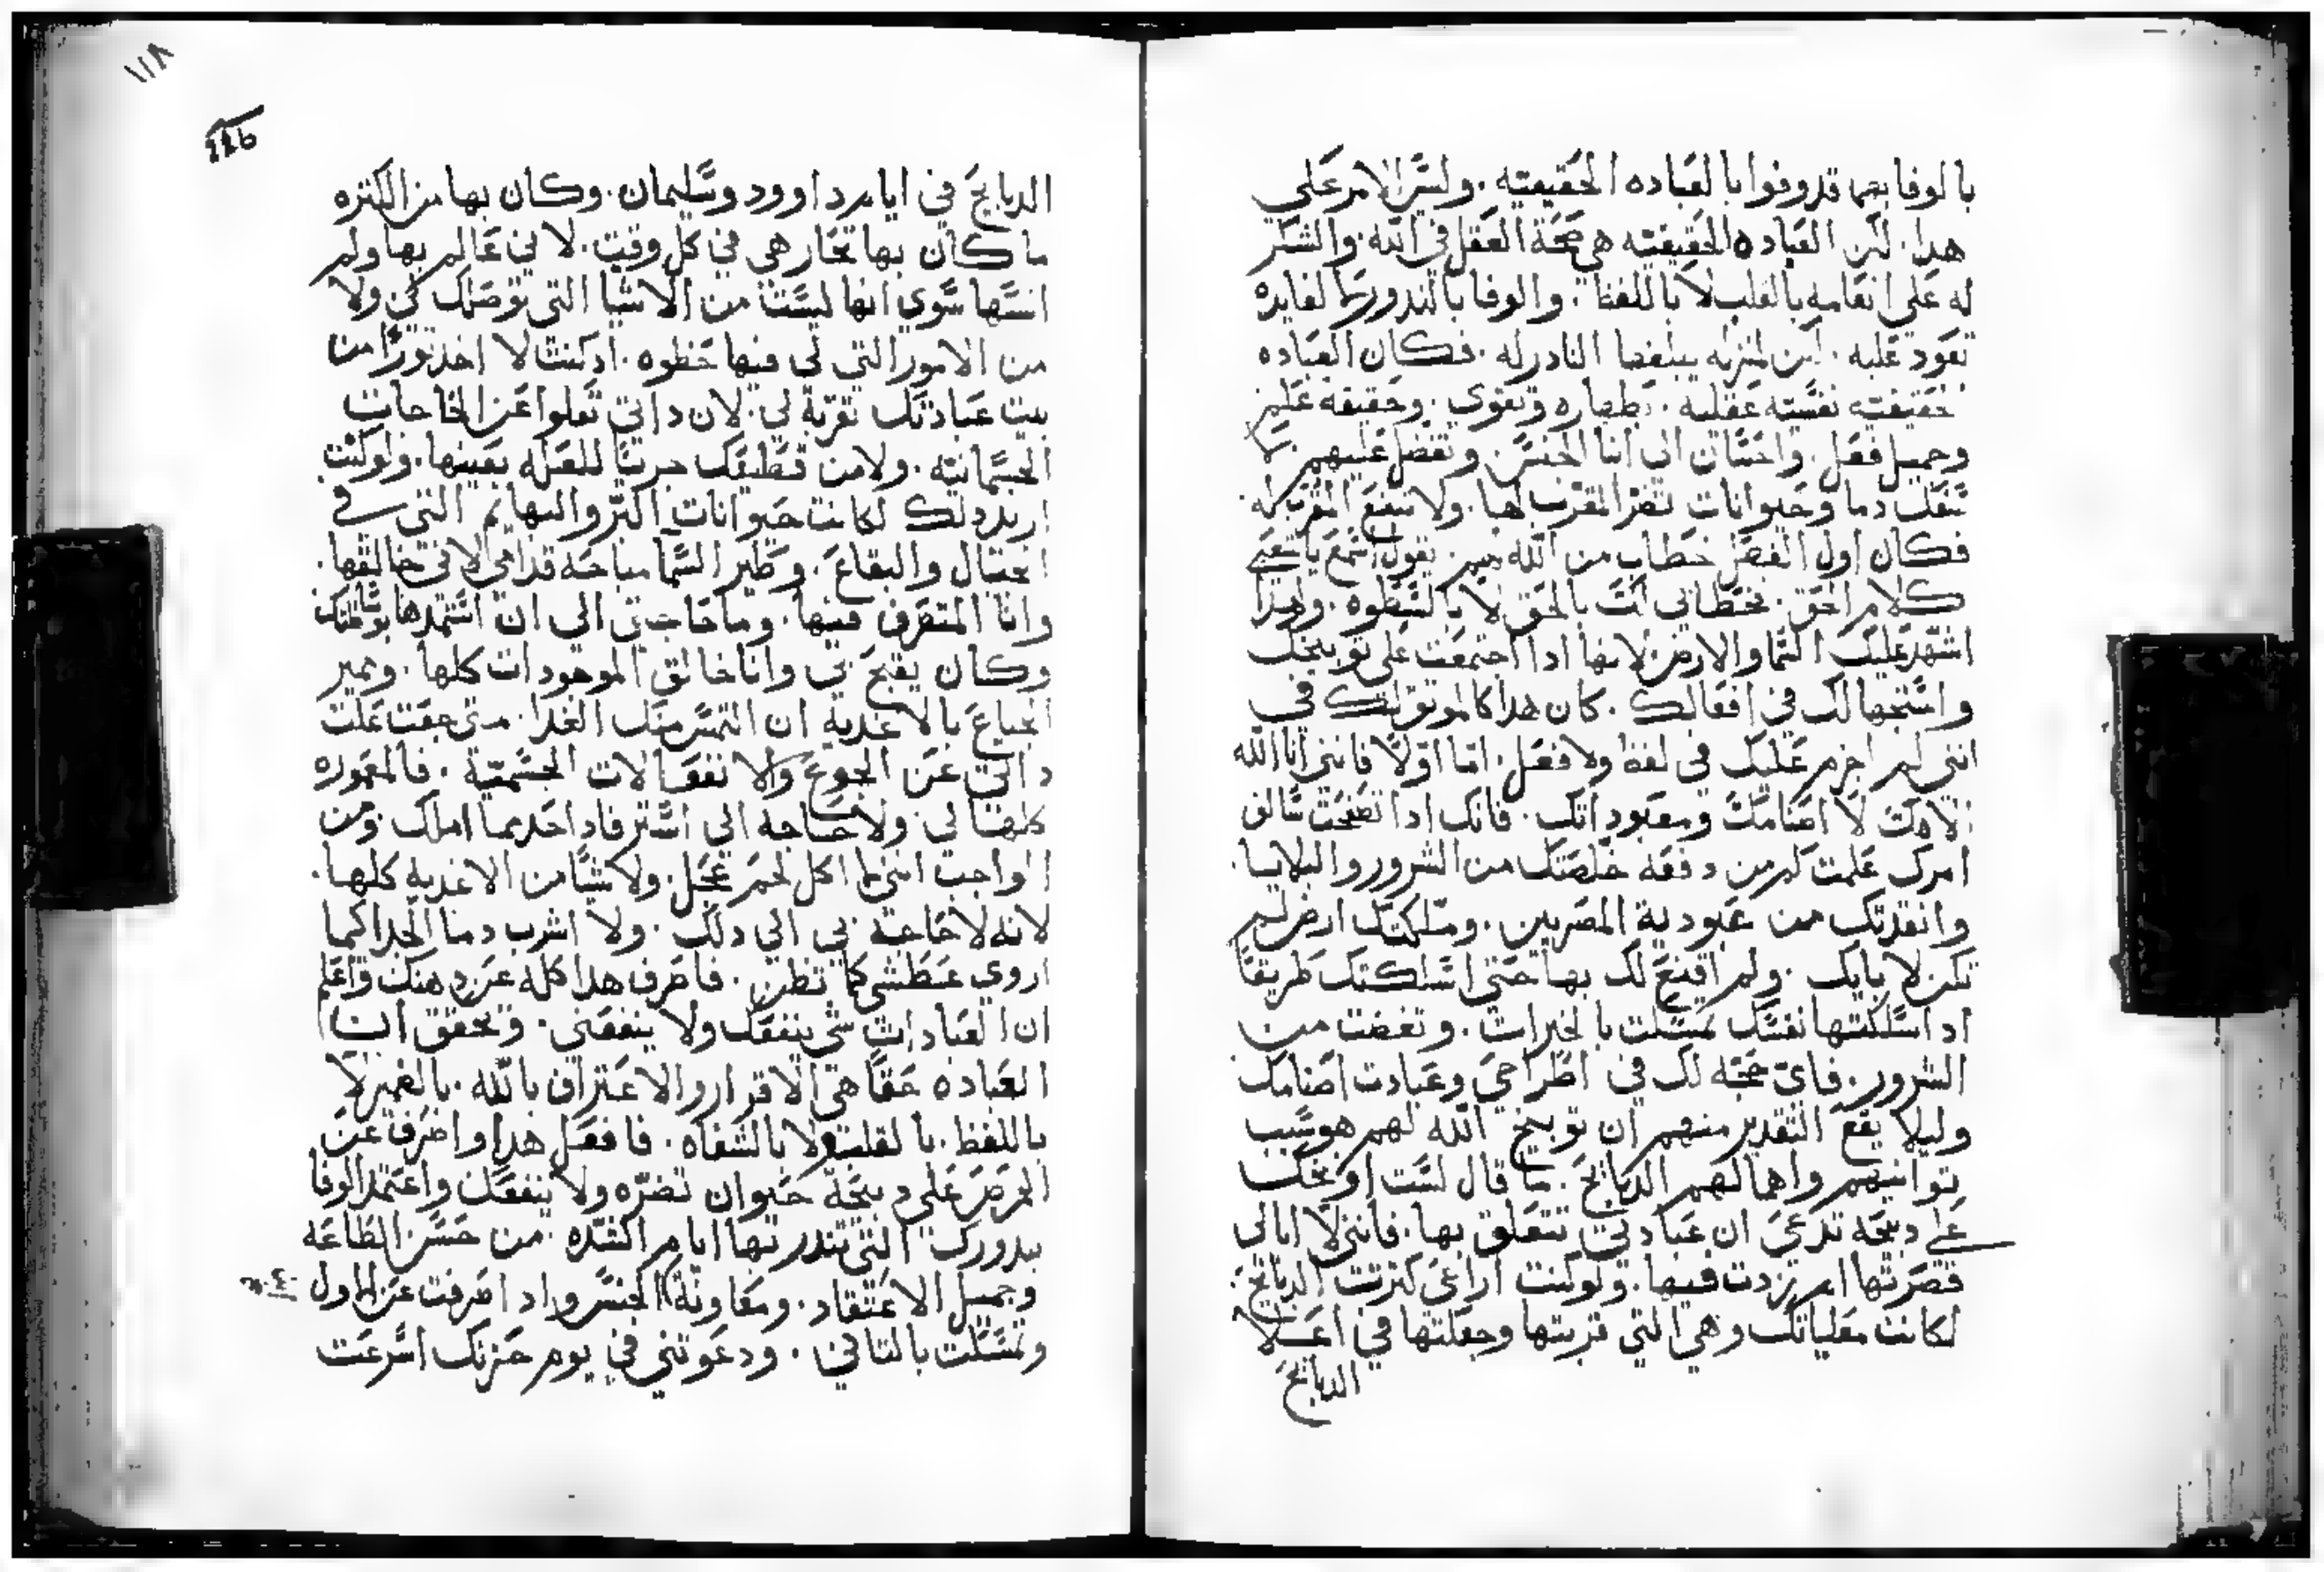 بالوفا بهما قد وفوا بالعباده الحقيقيه . وليس الامر على
هدا . لكن العباده الحقيقيه هى صحة العقل في الله . والشكر
له على انعامه بالقلب لا باللفظ . والوفا بالندور لفايده
تعود عليه . يبلغها النادر له . فكان العباده
حقيقيته نفسيه عقليه . بطهاره وتقوى . وحقيقه علم
وجميل فعل . واحسان الى ابنا الجنس . وتفضل عليهم .
دما وحيوانات تضر المقرب لها . ولا ينتفع المقربه له
فكان اول الفصل خطاب من الله يقول اسمع يا شعبي
كلام الحق . بخطابي انت بالحق لا بالسطوه . ولهدا
اشهد عليك السما والارض لانها ادا اجتمعت على توبيخك
واستجهالك في افعالك . كان هدا كالموتولك في
انني لم اجرم عليك في لفظ ولا فعل . اما اولًا فانني انا الله
الاهك لا اصنامك ومعبوداتك . فانك ادا تصفحت سالف
امرك علمت كم من دفعه خلصتك من الشرور والبلايا
وانقدتك من عبودية المصريين . وملكتك ارض لم
تكن لابايك . ولم اقنع لك بها حتى اسلكتك طريقًا
اد اسلكتها نفسك تمسكت بالخيرات . وتغضت من
الشرور . فاىّ حجّه لك في اطراحي وعبادت اصنامك
وليلا يقع التقدير منهم ان توبيخ الله لهم هو بسبب
توانيهم واهمالهم الدبايح . ما قال لست اوبخك
على دبيحه تدعي ان عبادتي تتعلق بها . فانني لا ابالي
قصرتها ام زدت فيها . ولو كنت اراعي كترت الدبايح
لكانت مقلياتك وهي التي قربتها وجعلتها في اعلا
الدبايح
١١٨
الدبايح في ايام داوود وسليمان . وكان بها من الكتره
ما كان بها تحار هى في كل وقت . لانني عالم بها ولم
انسها سوى انها ليست من الاشيا التي توصلك لي ولا
من الامور التي لي فيها حظوه . اد كنت لا اخد تورًا من
بيت عبادتك تقربة لي . لان داتي تعلوا عن الحاجات
الجسمانيه . ولا من قطيعك جديًا للعله بعينها . ولو كنت
اريد دلك لكانت حيوانات البرّ والبهايم التي في
الجبال والبقاع . وطير السما مباحه قدامي لانى خالقها .
وانا المتصرف فيها . وما حاجتي الى ان استمدها
وكان يقبح بى وانا خالق الموجودات كلها . ومير
الجياع بالاغديه ان التمس منك الغدا . متى جعت علت
داتي عن الجوع والانفعالات الجسميّة . فالمعموره
كلها لي ولا حاجه الى استرفاد احد بما املك . ومن
الواجب انني ما اكل لحم عجل . ولا شيًا من الاغديه كلها .
لانه لا حاجة بي الي دلك . ولا اشرب دما الجدا كيما
اروي عطشي كما تظن . فاصرف هدا كله عن دهنك واعلم
ان العبادات شي ينفعك ولا ينفعني . وتحقق ان
العباده حقًا هي الاقرار والاعتراف بالله . بالضمير لا
باللفظ . بالقلب ولا بالشفاه . فافعل هدا واصرف عن
الحرص على دبيحة حيوان تضرّه ولا ينفعك واعتمد الوفا
بندورك التي تندر بها ايام الشده . من حسن الطاعه
وجميل الاعتقاد . ومعاونة الجنس واد اصرفت عن الاول
وتمسكت بالتاني . ودعوتني في يوم حزنك اسرعت